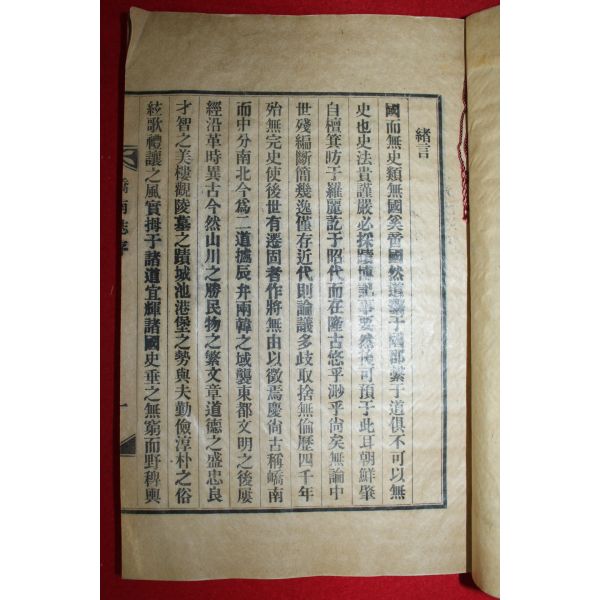 緒言
國而無史類無國矣奚啻國然道繫于國郡繫于道俱不可以無
史也史法貴謹嚴必探賾博記事要然後可預于此耳朝鮮肇
自檀箕昉于羅麗訖于昭代而在隆古悠乎渺乎尙矣無論中
世殘編斷簡幾逸僅存近代則論議多歧取捨無倫歷四千年
殆無完史使後世有遷固者作將無由以徵焉慶尙古稱嶠南
而中分南北今爲二道攄辰弁兩韓之域襲東都文明之後屢
經沿革時異古今然山川之勝民物之繁文章道德之盛忠良
才智之美樓觀陵墓之蹟城池港堡之勢與夫勤儉淳朴之俗
絃歌禮讓之風實拇于諸道宜輝諸國史垂之無窮而野稗輿
嶠南誌序
一